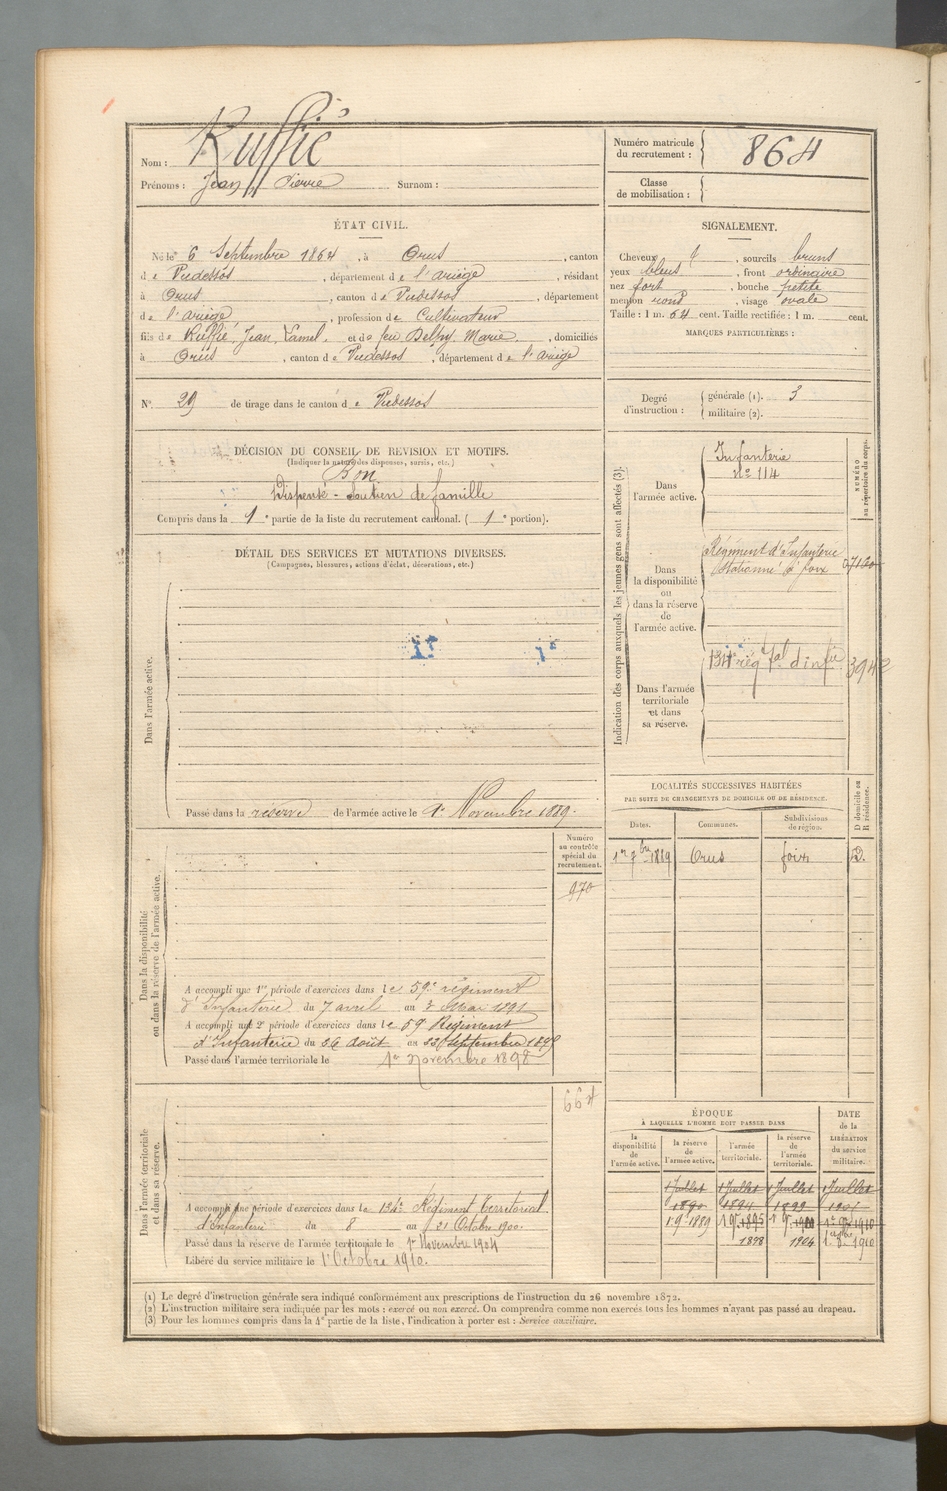 Nom : Ruffié
Prénoms : Jean Pierre Surnom :
Numéro matricule du recrutement : 864
Classe de mobilisation :
ÉTAT CIVIL.
Né le 6 Septembre 1864, à Orus, canton
de Vicdessos, département de l'ariège, résidant
à Orus, canton de Vicdessos, département
de l'ariège, profession de Cultivateur
fils de Ruffié, Jean, et de feu Delpy, Marie, domiciliés
à Orus, canton de Vicdessos, département de l'ariège
SIGNALEMENT.
Cheveux , sourcils bruns
yeux bleus, front ordinaire
nez fort, bouche petite
menton rond, visage ovale
Taille : 1 m. 64 cent. Taille rectifiée : 1 m. cent.
MARQUES PARTICULIÈRES :
N° 29 de tirage dans le canton de Vicdessos
Degré d'instruction : générale (1). 3
militaire (2).
DÉCISION DU CONSEIL DE REVISION ET MOTIFS.
(Indiquer la nature des dispenses, sursis, etc.)
Bon
Dispensé - Soutien de famille
Compris dans la 1e partie de la liste du recrutement cantonal. ( 1e portion).
DÉTAIL DES SERVICES ET MUTATIONS DIVERSES.
(Campagnes, blessures, actions d'éclat, décorations, etc.)
Dans l'armée active.
Passé dans la réserve de l'armée active le 1er Novembre 1889.
Indication des corps auxquels les jeunes gens sont affectés (3).
NUMÉRO au répertoire du corps.
Dans l'armée active.
Infanterie
No 114
Dans la disponibilité ou dans la réserve de l'armée active.
Régiment d'Infanterie
Stationné à foix
Dans l'armée territoriale et dans sa réserve.
134e rég tal d'infie 3942
LOCALITÉS SUCCESSIVES HABITÉES
PAR SUITE DE CHANGEMENTS DE DOMICILE OU DE RÉSIDENCE.
Dates. Communes. Subdivisions de région. D domicile ou R résidence.
1er 7bre 1889 Orus foix D.
Dans la disponibilité ou dans la réserve de l'armée active.
Numéro au contrôle spécial du recrutement.
970
A accompli une 1re période d'exercices dans le 59e régiment
d'Infanterie du 7 avril au 4 Mai 1891
A accompli une 2e période d'exercices dans le 59 Régiment
d'Infanterie du 26 août au Septembre
Passé dans l'armée territoriale le 1er Novembre 1898
Dans l'armée territoriale et dans sa réserve.
664
A accompli une période d'exercices dans le 134e Régiment Territorial
d'Infanterie du 8 au 21 Octobre 1900.
Passé dans la réserve de l'armée territoriale le 1er Novembre 1904
Libéré du service militaire le 1er Octobre 1910.
ÉPOQUE
À LAQUELLE L'HOMME DOIT PASSER DANS
DATE de la LIBÉRATION du service militaire.
la disponibilité de l'armée active. la réserve de l'armée active. l'armée territoriale. la réserve de l'armée territoriale.
1 Juillet 1 Juillet 1 Juillet 1 Juillet
1890 1894 1899
1898 1904 1910
(1) Le degré d'instruction générale sera indiqué conformément aux prescriptions de l'instruction du 26 novembre 1872.
(2) L'instruction militaire sera indiquée par les mots : exercé ou non exercé. On comprendra comme non exercés tous les hommes n'ayant pas passé au drapeau.
(3) Pour les hommes compris dans la 4e partie de la liste, l'indication à porter est : Service auxiliaire.